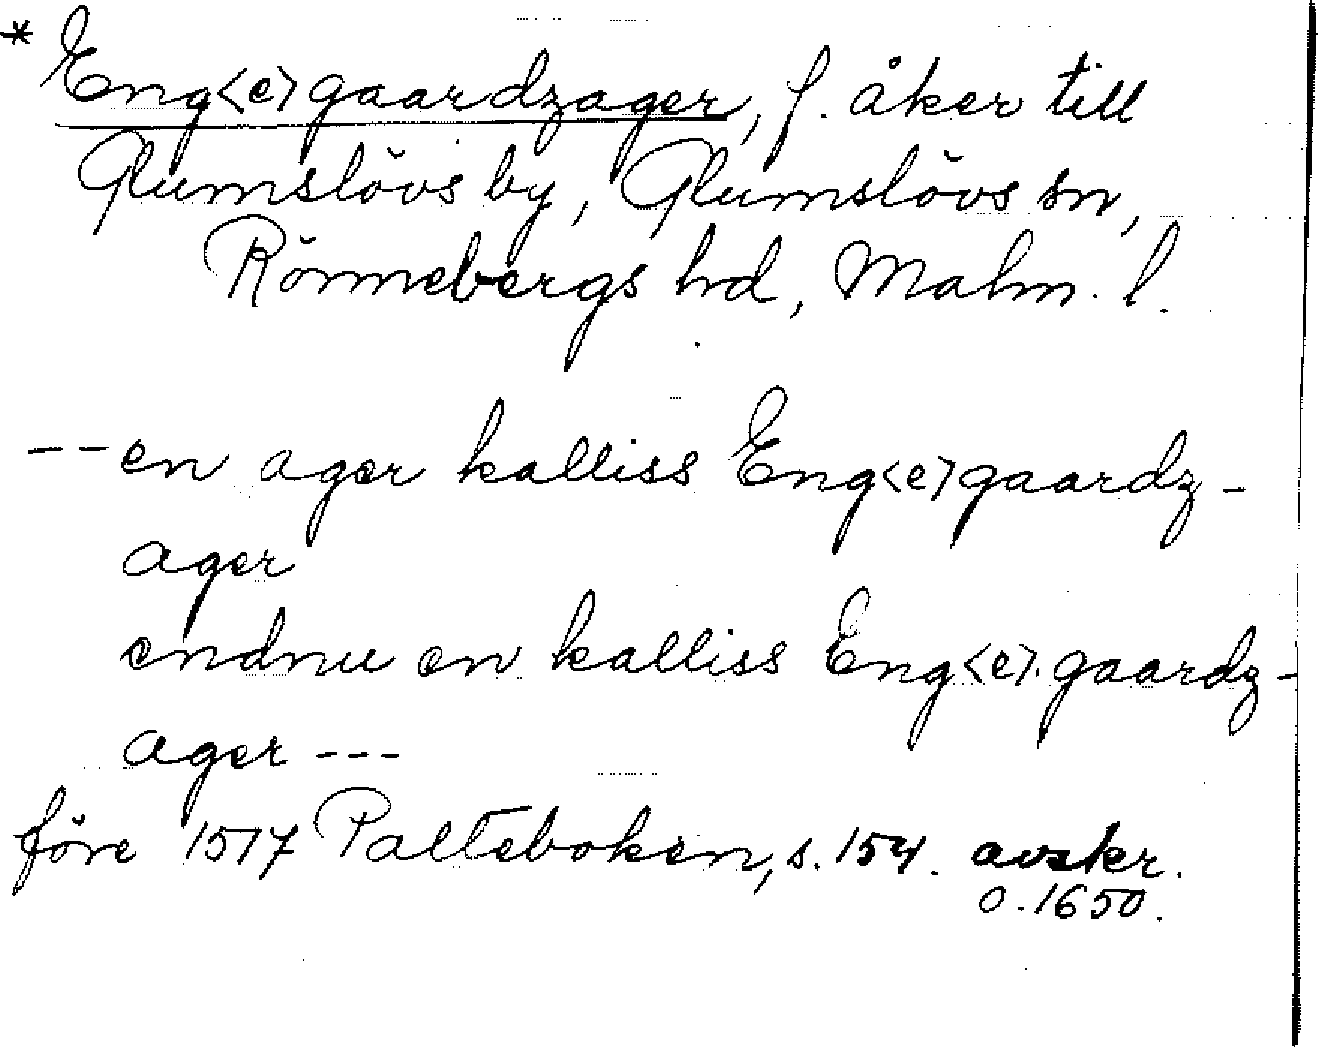 * Eng<e>gaardzager, f. åker till
Glumslövs by, Glumslövs sn,
Rönnebergs hd, Malm. l.
-- en ager kalliss Eng<e>gaardz-
ager
endnu en kalliss Eng<e>gaardz-
ager ---
före 1517 Palteboken, s. 154. avskr.
o. 1650.